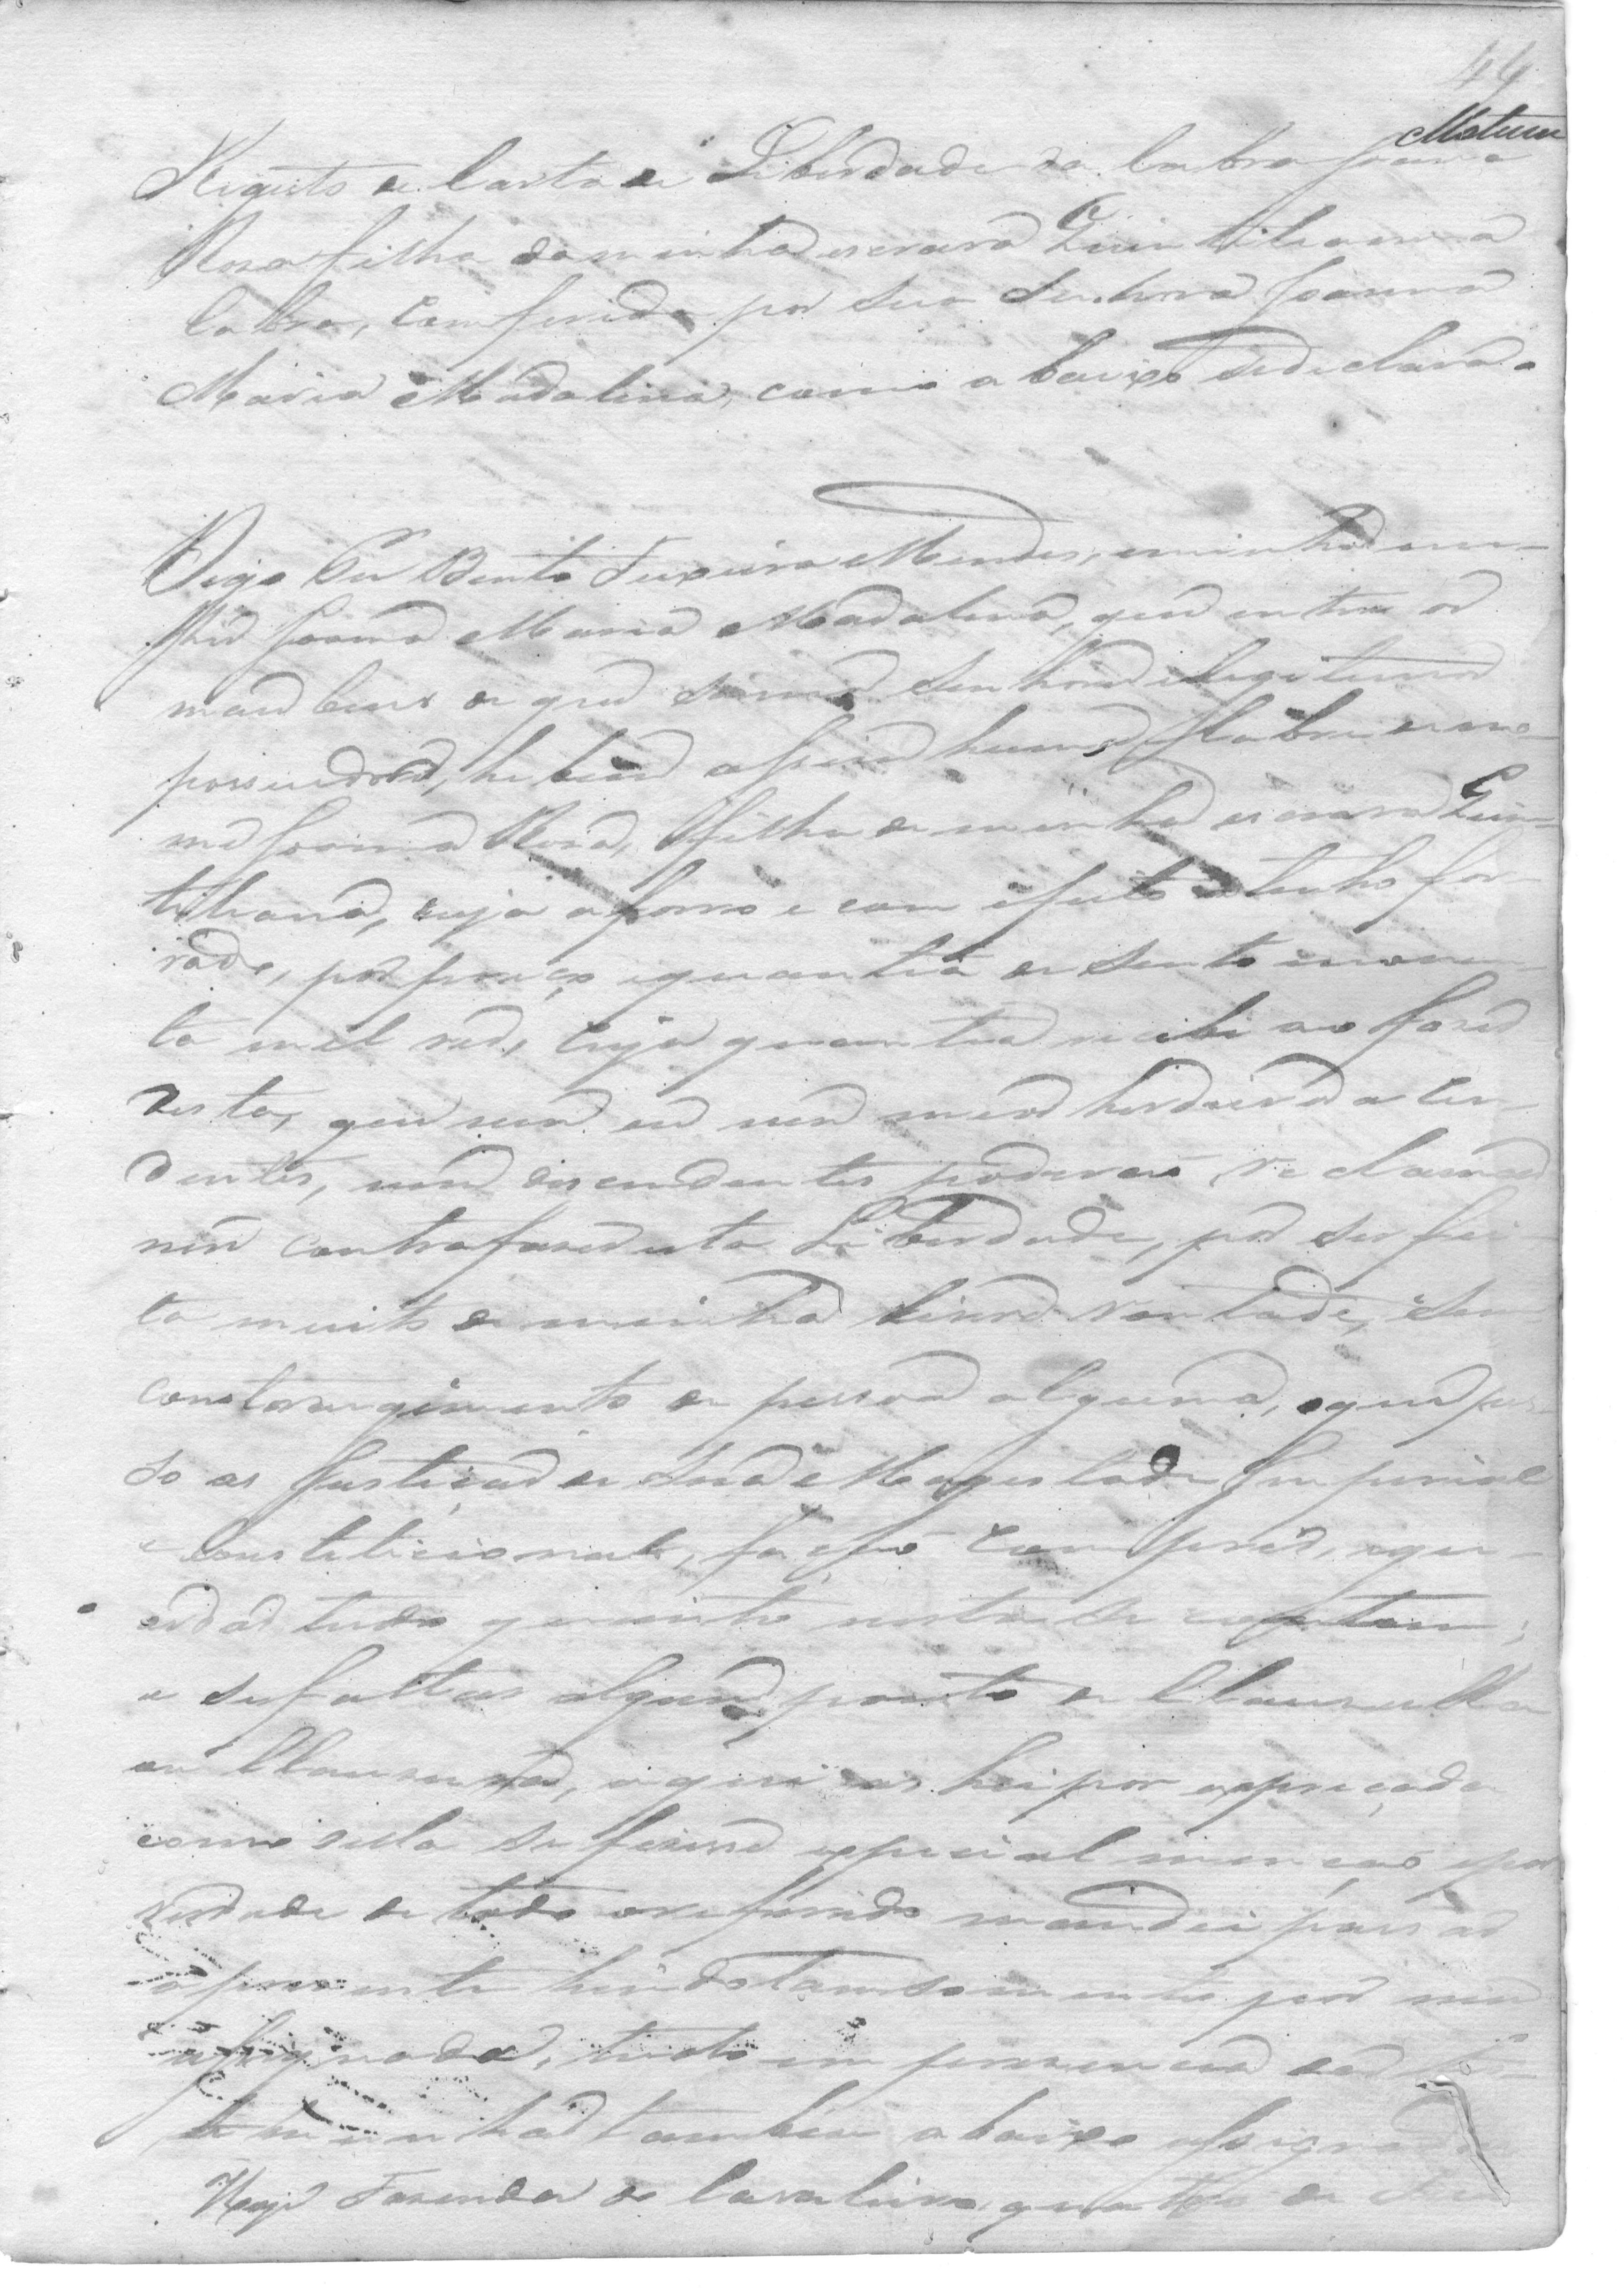 44
Registo de Carta de Liberdade da Cabra Joana
Rosa filha da minha escrava Quintilianna
Cabra, comferida por sua Senhora Joanna
Maria Madalina, como abaixo se declara.
Digo Eu Bento Teixeira Mendes, e minha mu-
lhér Joanna Maria Madalena, que entre os
mais bens de que somos Senhores e legitimos
possuidores, he bem assim huma Cabra de no-
me Joanna Rosa, filha de minha escrava Quin-
tiliana, cuja aforro e com efeito tenho for-
rado, por preço e quantia de sento e noven-
ta mil reis, cuja quantia recebi ao faser
desta, que nem eu nem meus herdeiros acen-
dentes, nem decendentes poderaõ reclamar
nem contrafaser esta Liberdade, por ser fei-
ta muito de minha livre vontade, e sem
constrangimento de pessoa alguma, e que pes-
so as Justiças de Sua Magestade Imperial
e Constiticional, fação comprir, e guar-
dar tudo quanto nesta se contem;
e se faltar algum ponto de Clausulla
ou Clausulas, aqui as hei por expreçada
como se della se fizesse especial menção e por
verdade de todo o referido mandei passar
a presente hindo tamsomente por mim
assignada, tudo em presença das tes-
temunhas tambem abaixo assignadas
Hoje Fazenda do Cavaleiro quatro de